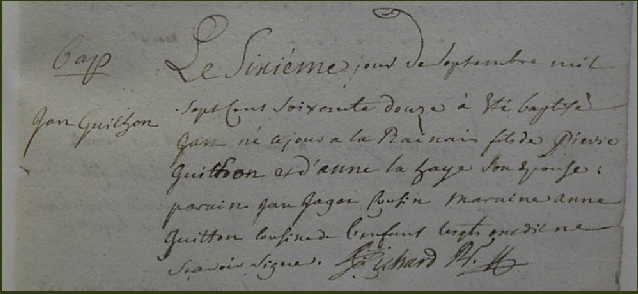 Bap
Jan Guitton
Le Sixiéme jour de Septembre mil
Sept Cent Soixante douze à été baptisé
Jan né ce jour a la Rainais fils de Pierre
Guitton et d'anne la faye Son Epouse :
parain Jan Cousin maraine anne
Guitton Cousine de L'enfant ne
Scavoir Signer. Richard